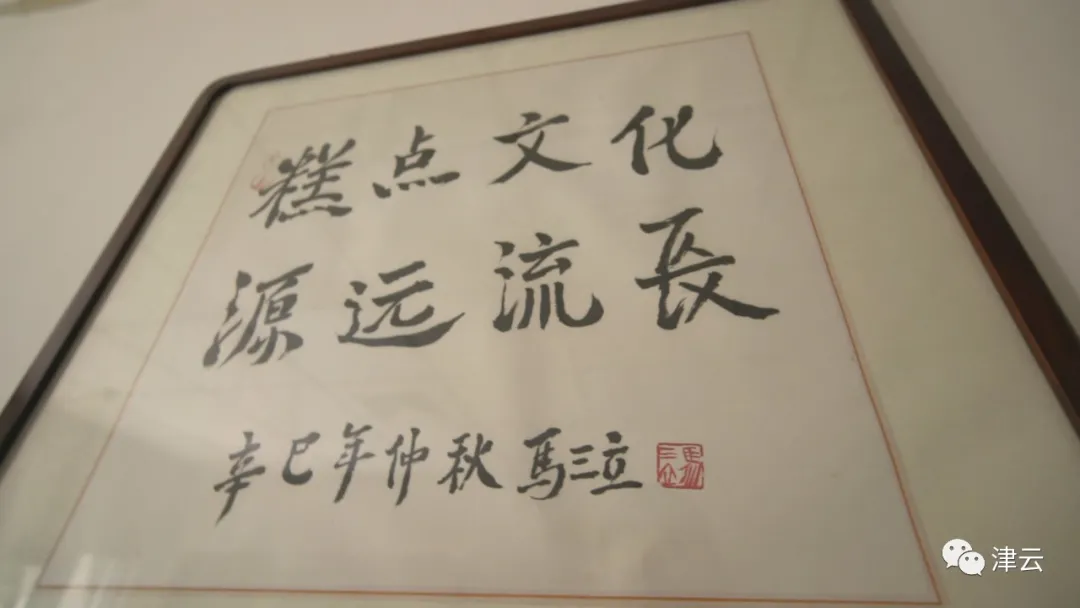 糕点文化
源远流長
辛巳年仲秋 馬三立
馬三立
津云